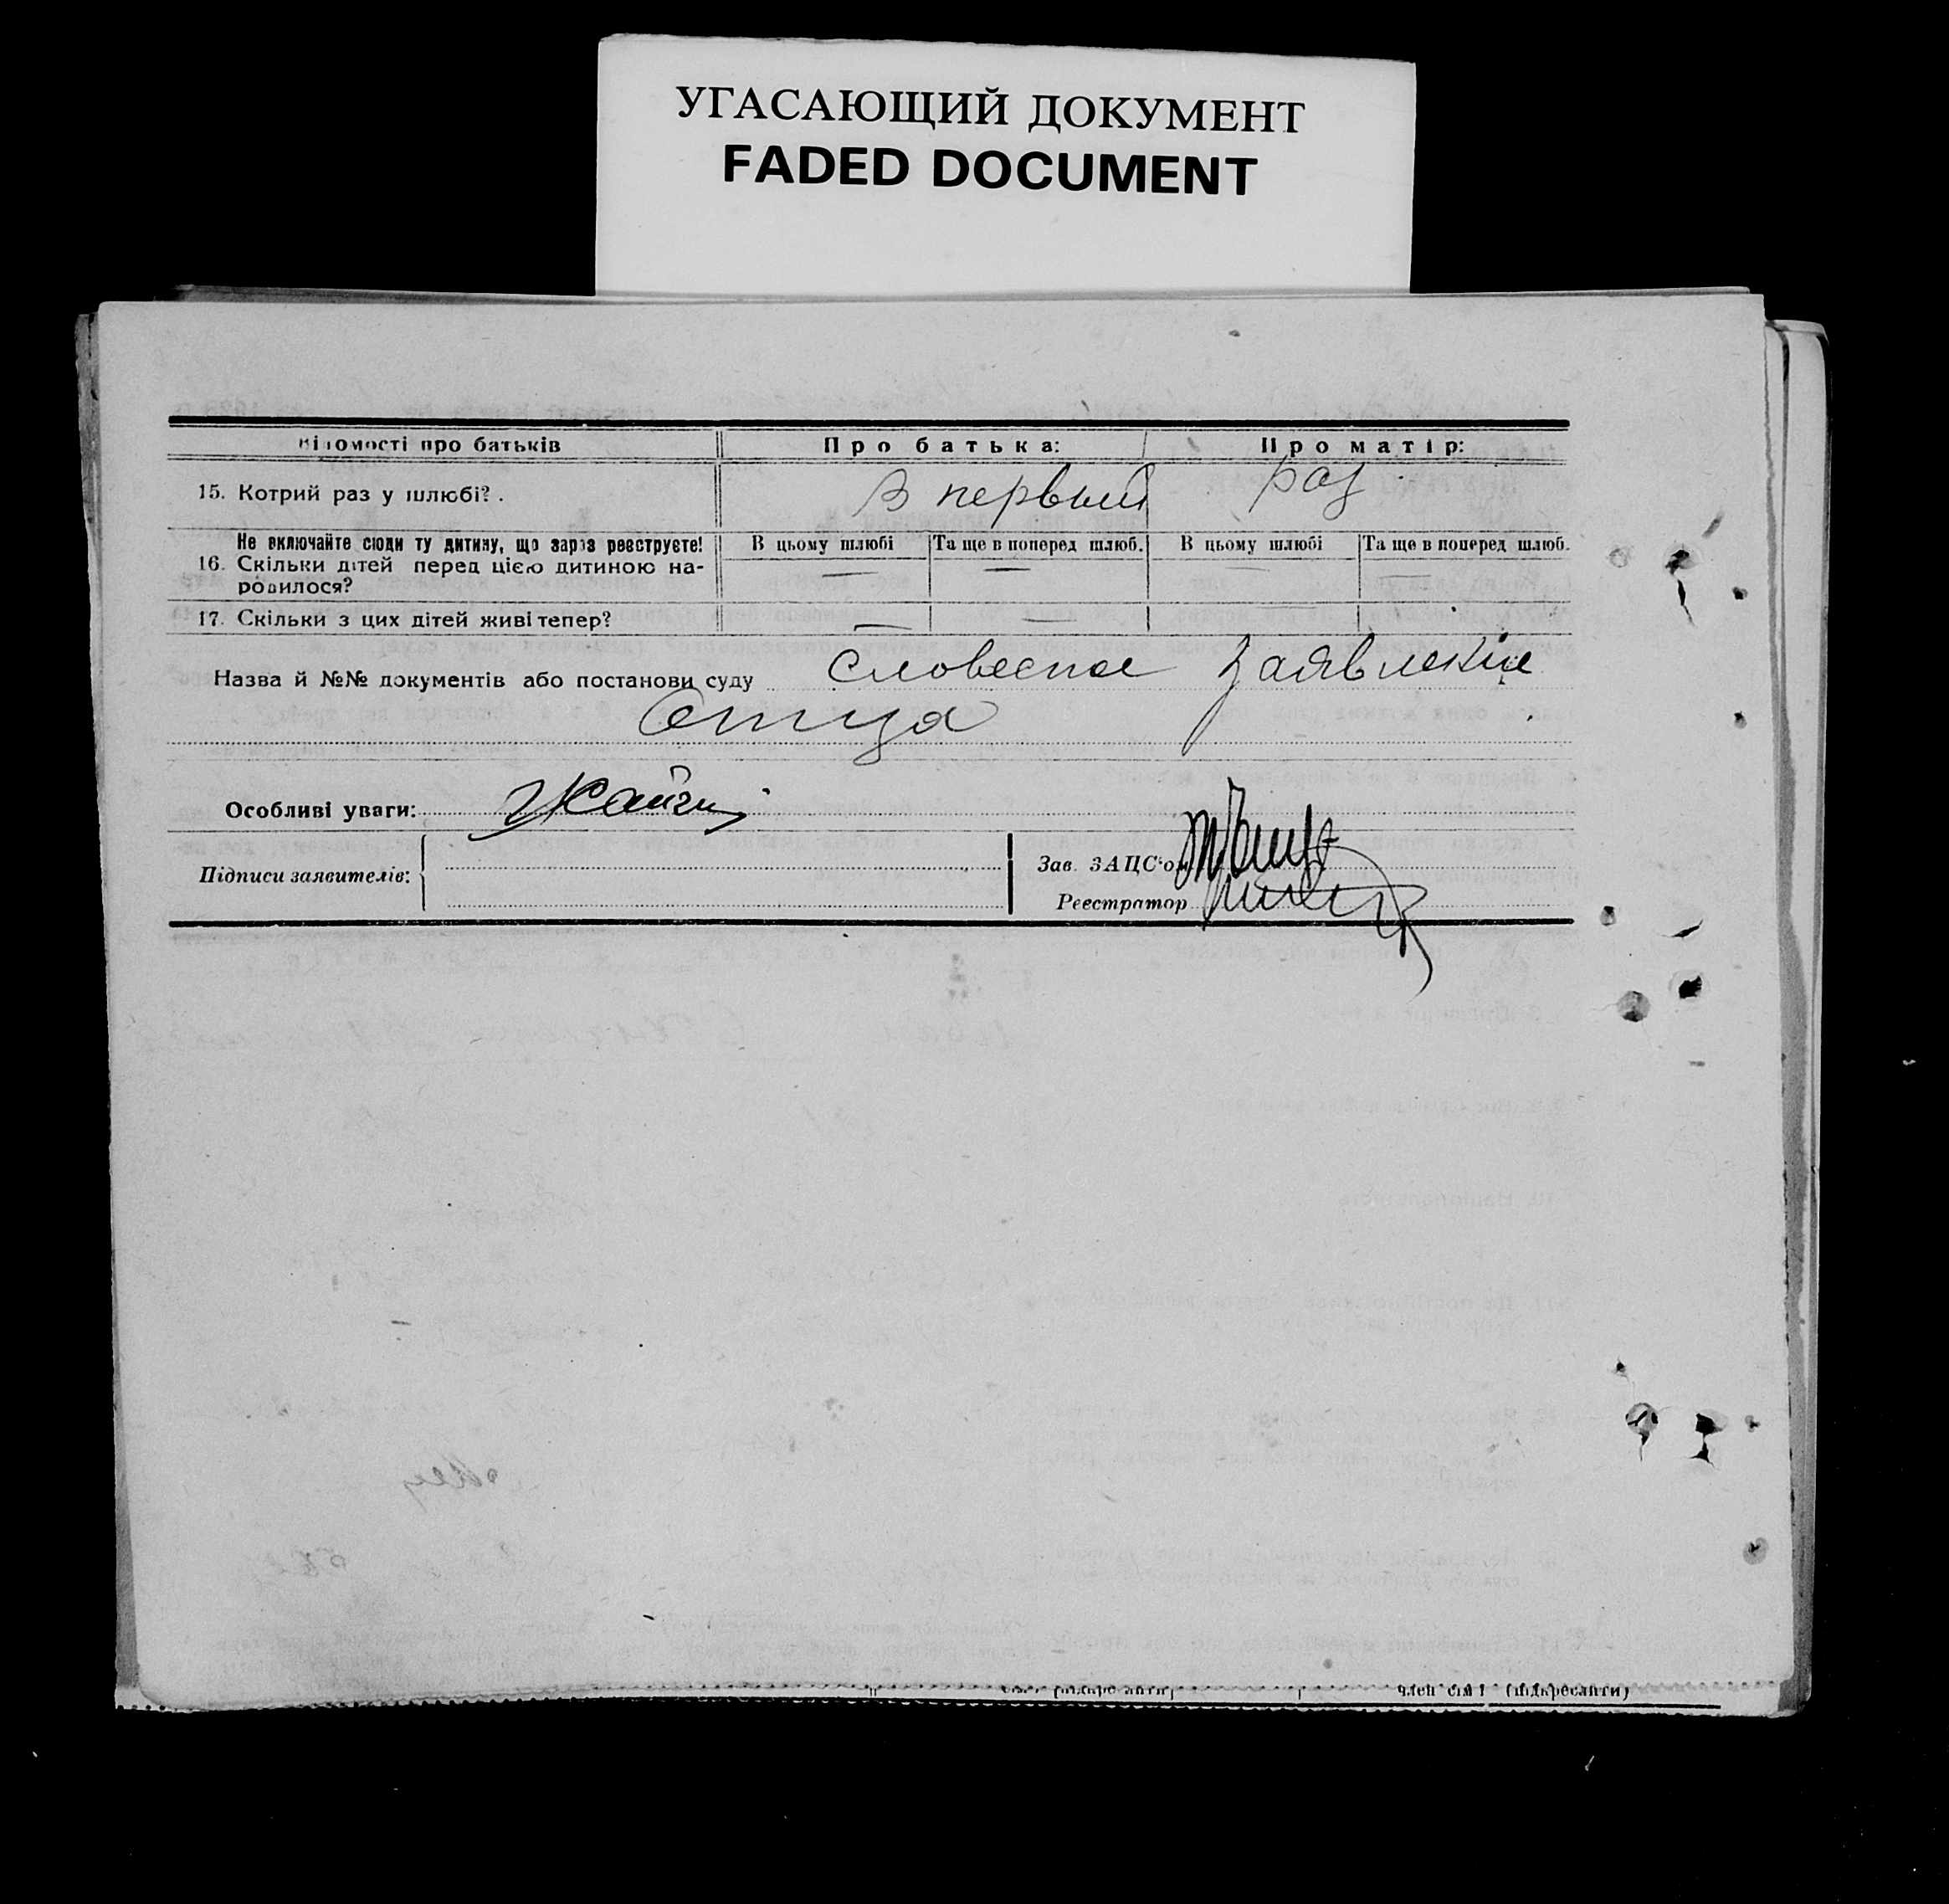 УГАСАЮЩИЙ ДОКУМЕНТ
FADED DOCUMENT
Відомості про батьків Про батька: Про матір:
15. Котрий раз у шлюбі? . В первый раз
Не включайте сюди ту дитину, що зараз реєструєте! В цьому шлюбі Та ще в поперед шлюб. В цьому шлюбі Та ще в поперед шлюб.
16. Скільки дітей перед цією дитиною на-
родилося? — — —
17. Скільки з цих дітей живі тепер? — —
Назва й №№ документів або постанови суду словесное заявление
Отца
Особливі уваги:
Підписи заявителів:
Зав. ЗАЦС'ом
Реєстратор
член сім'ї (підкреслити)